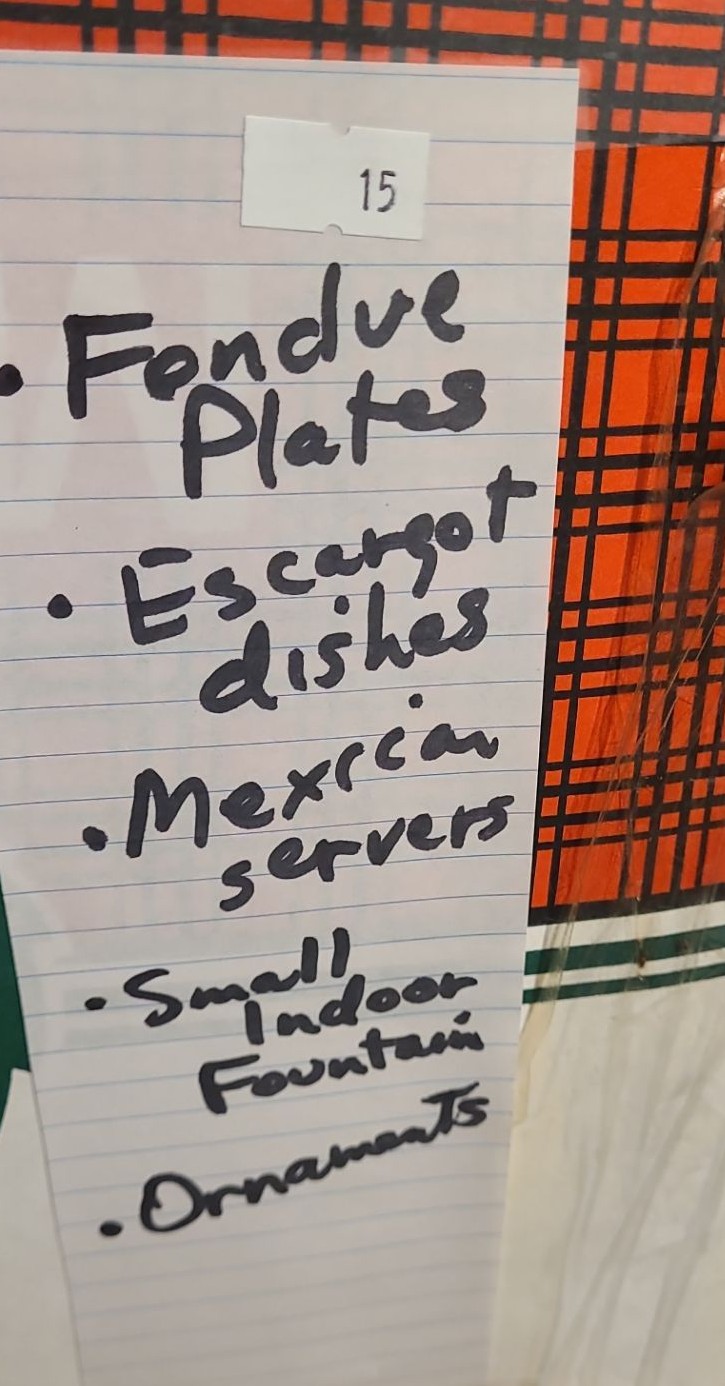 15
• Fondue
Plates
• Escargot
dishes
• Mexican
servers
• Small
Indoor
Fountain
• Ornaments